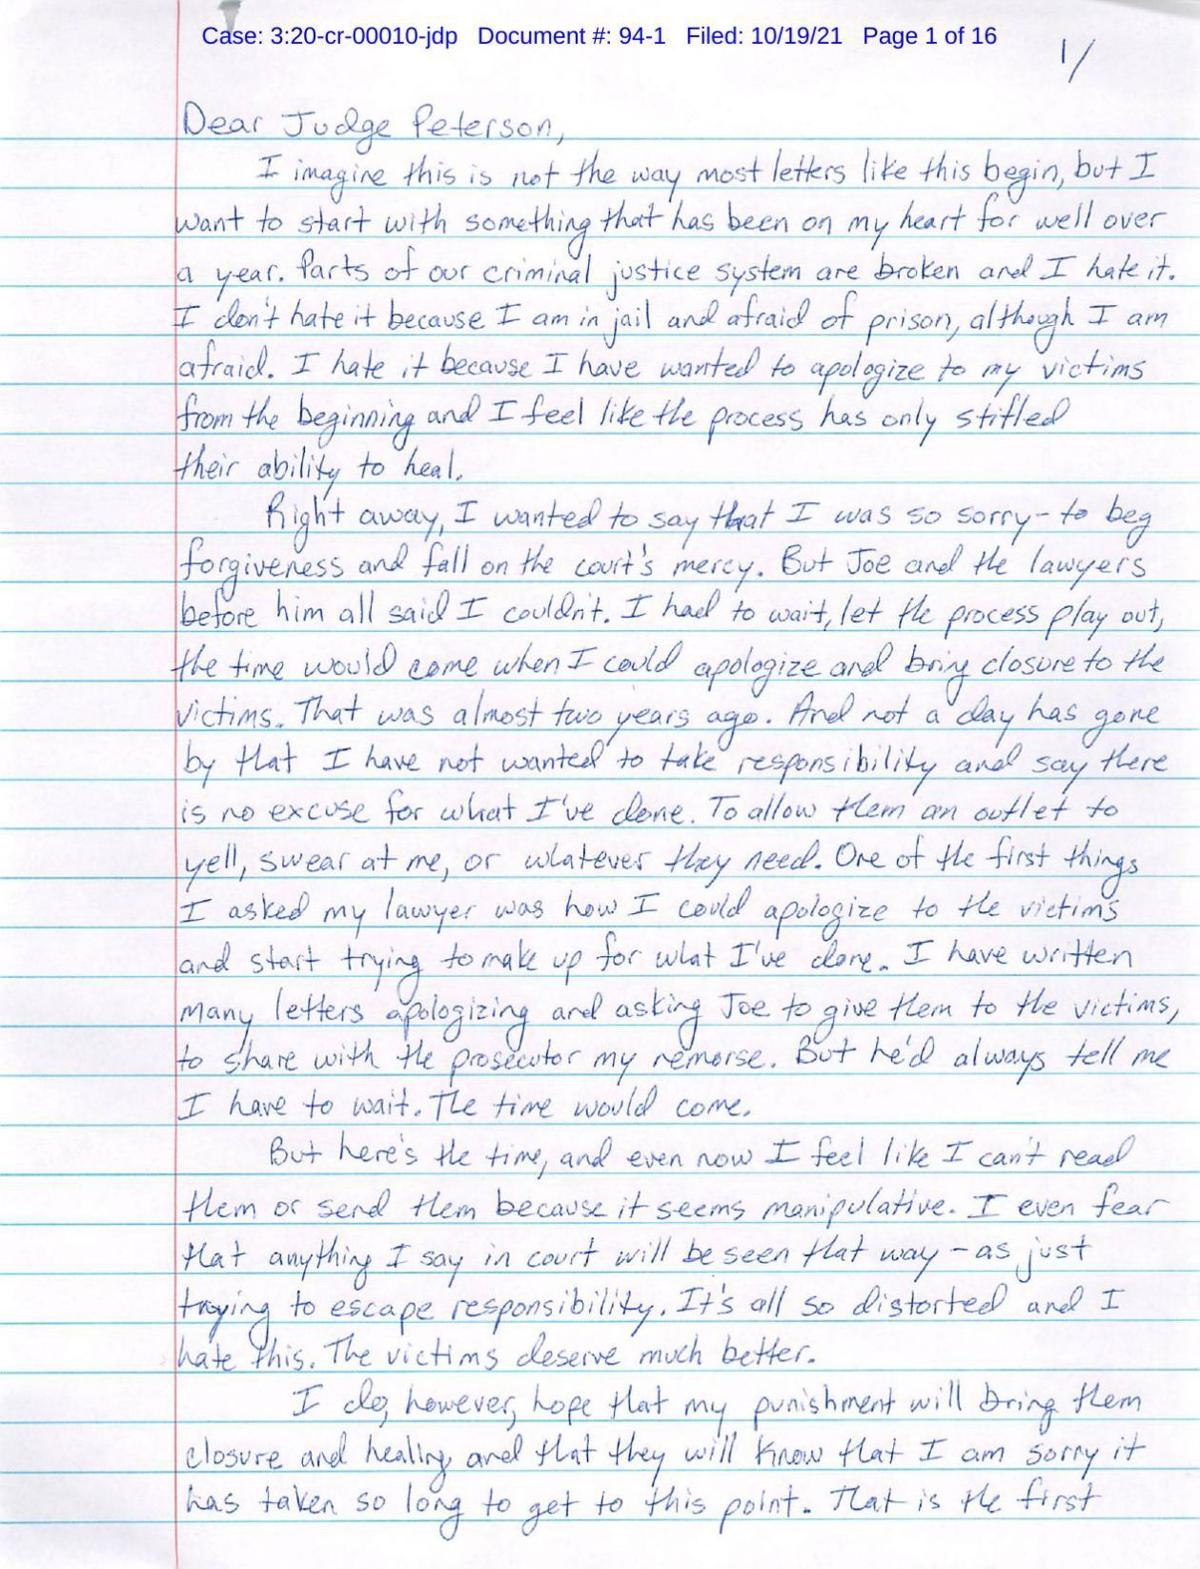 Case: 3:20-cr-00010-jdp Document #: 94-1 Filed: 10/19/21 Page 1 of 16
1/
Dear Judge Peterson,
I imagine this is not the way most letters like this begin, but I
want to start with something that has been on my heart for well over
a year. Parts of our criminal justice system are broken and I hate it.
I don't hate it because I am in jail and afraid of prison, although I am
afraid. I hate it because I have wanted to apologize to my victims
from the beginning and I feel like the process has only stifled
their ability to heal.
Right away, I wanted to say that I was so sorry - to beg
forgiveness and fall on the court's mercy. But Joe and the lawyers
before him all said I couldn't. I had to wait, let the process play out,
the time would come when I could apologize and bring closure to the
victims. That was almost two years ago. And not a day has gone
by that I have not wanted to take responsibility and say there
is no excuse for what I've done. To allow them an outlet to
yell, swear at me, or whatever they need. One of the first things
I asked my lawyer was how I could apologize to the victims
and start trying to make up for what I've done. I have written
many letters apologizing and asking Joe to give them to the victims,
to share with the prosecutor my remorse. But he'd always tell me
I have to wait. The time would come.
But here's the time, and even now I feel like I can't read
them or send them because it seems manipulative. I even fear
that anything I say in court will be seen that way - as just
trying to escape responsibility. It's all so distorted and I
hate this. The victims deserve much better.
I do, however, hope that my punishment will bring them
closure and healing, and that they will know that I am sorry it
has taken so long to get to this point. That is the first